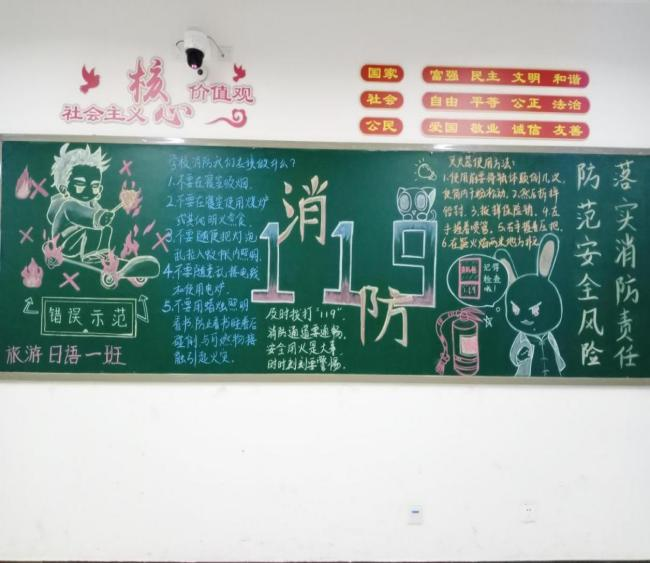 社会主义核心价值观
国家 富强 民主 文明 和谐
社会 自由 平等 公正 法治
公民 爱国 敬业 诚信 友善
学校消防我们应该做什么?
1.不要在寝室吸烟.
2.不要在寝室使用煤炉
或其他明火煮食.
3.不要随便把灯泡
4.不要随意乱接电线
和使用电炉.
5.不要用蜡烛照明
看书,防止看书时睡着后
碰倒,与可燃物接
触引起火灾.
错误示范
旅游日语一班
消
119
防
及时拨打"119".
消防通道要通畅.
安全用火是大事
时时刻刻要警惕.
灭火器使用方法:
1.使用前要将瓶体颠倒几次,
使筒内干粉松动.2.然后拆掉
铅封.3.拔掉保险销.4.左
手握着喷管.5.右手提着压把.
记得
检查
哦!
119
落实消防责任
防范安全风险